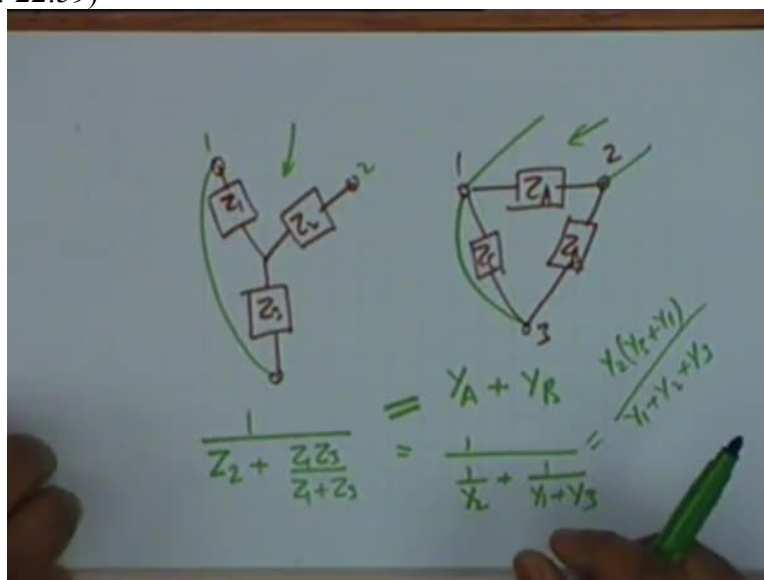 22:59)
1
2
Z1
Z2
Z3
1
2
ZA
3
1 / (Z2 + Z1Z3 / (Z1+Z3)) = YA + YB
= 1 / (1/Y2 + 1/(Y1+Y3)) = Y2(Y3+Y1) / (Y1+Y2+Y3)